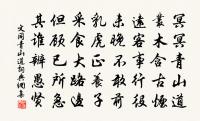 冥冥青山道
叢木含古煙
遠客事行役
未晚不敢前
乳虎正養子
采食大路邊
但顧已所急
其誰辨愚賢
文同青山道